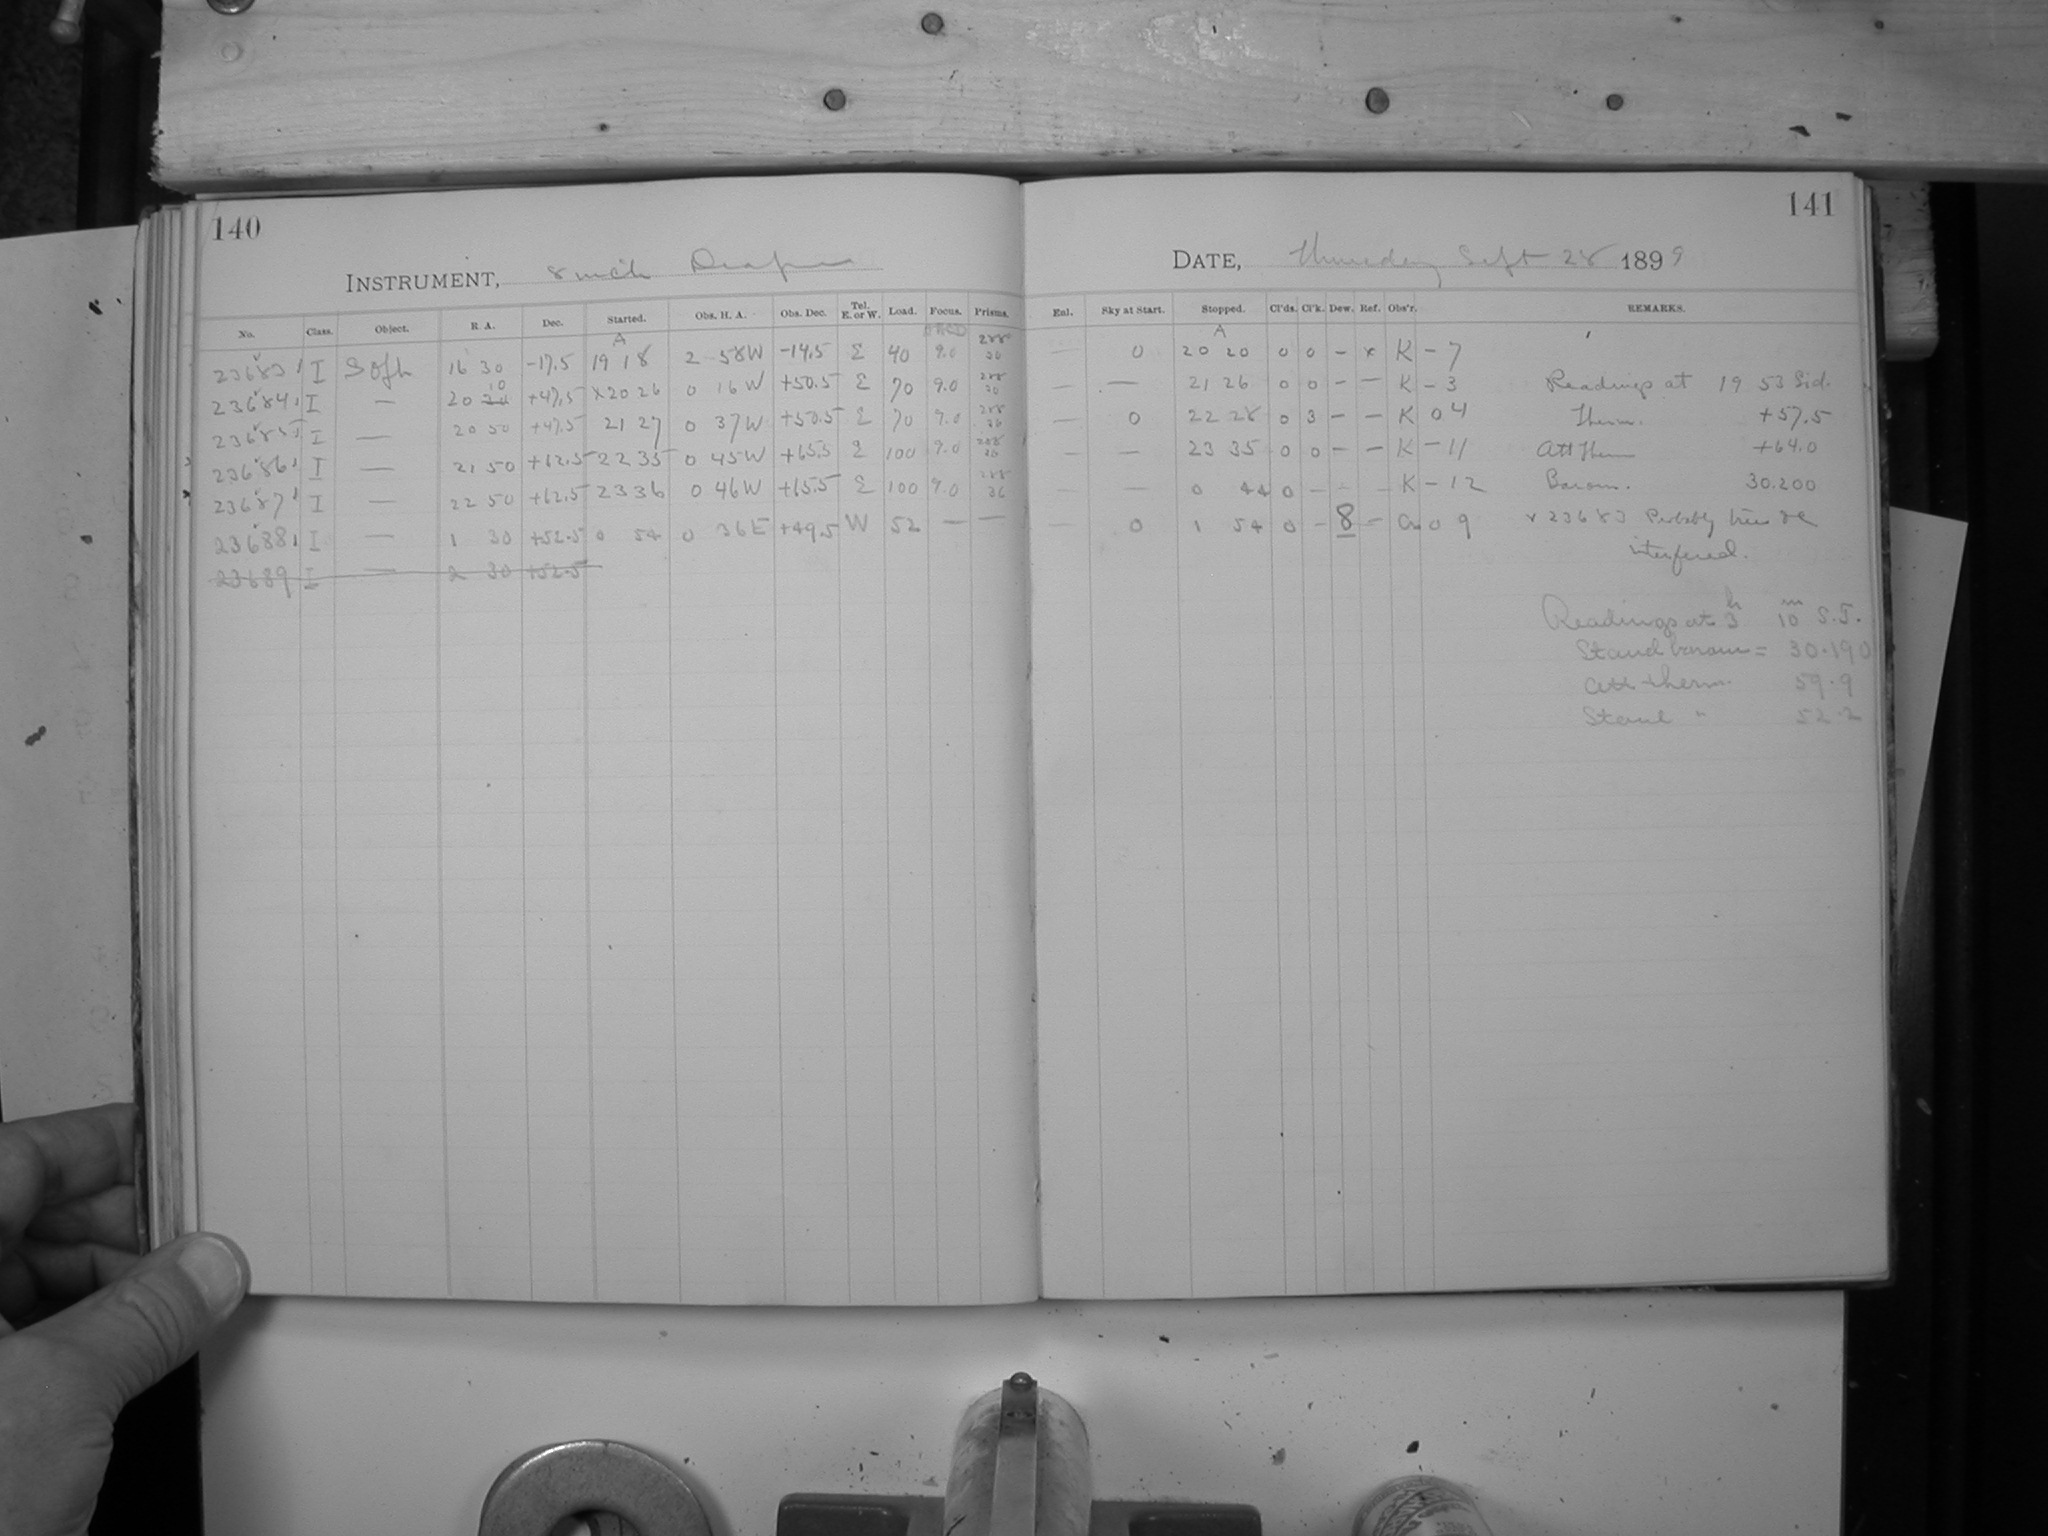 140
141
INSTRUMENT, 8 inch Draper
DATE, Thursday Sept 28 1899
No. Class. Object. R. A. Dec. Started. Obs. H. A. Obs. Dec. Tel. E. or W. Load. Focus. Prisms. Enl. Sky at Start. Stopped. Cl'ds. Cl'k. Dew. Ref. Obs'r. REMARKS.
A A
23683 I 16 30 -17.5 19 18 2 58W -14.5 E 40 9.0 — 0 20 20 0 0 - x K - 7
23684 I — 20 10 +47.5 x20 26 0 16 W +50.5 E 70 9.0 — — 21 26 0 0 - - K - 3 Readings at 19 53 Sid.
23685 I — 20 50 +47.5 21 27 0 37W +50.5 E 70 9.0 — 0 22 28 0 3 - - K 0 4 Therm. +57.5
23686 I — 21 50 +62.5 22 35 0 45W +65.5 E 100 9.0 — — 23 35 0 0 - - K - 11 Att Therm +64.0
23687 I — 22 50 +62.5 23 36 0 46W +65.5 E 100 9.0 — — 0 44 0 - - K - 12 Barom. 30.200
23688 I — 1 30 +52.5 0 54 0 36E +49.5 W 52 — — — 0 1 54 0 - 8 - 0 9 x 23683 Probably tree
interfered.
23689 I — 2 30 +52.5
Readings at 3h 10m S.T.
Stand barom = 30.190
Att therm. 59.9
Stand " 52.2